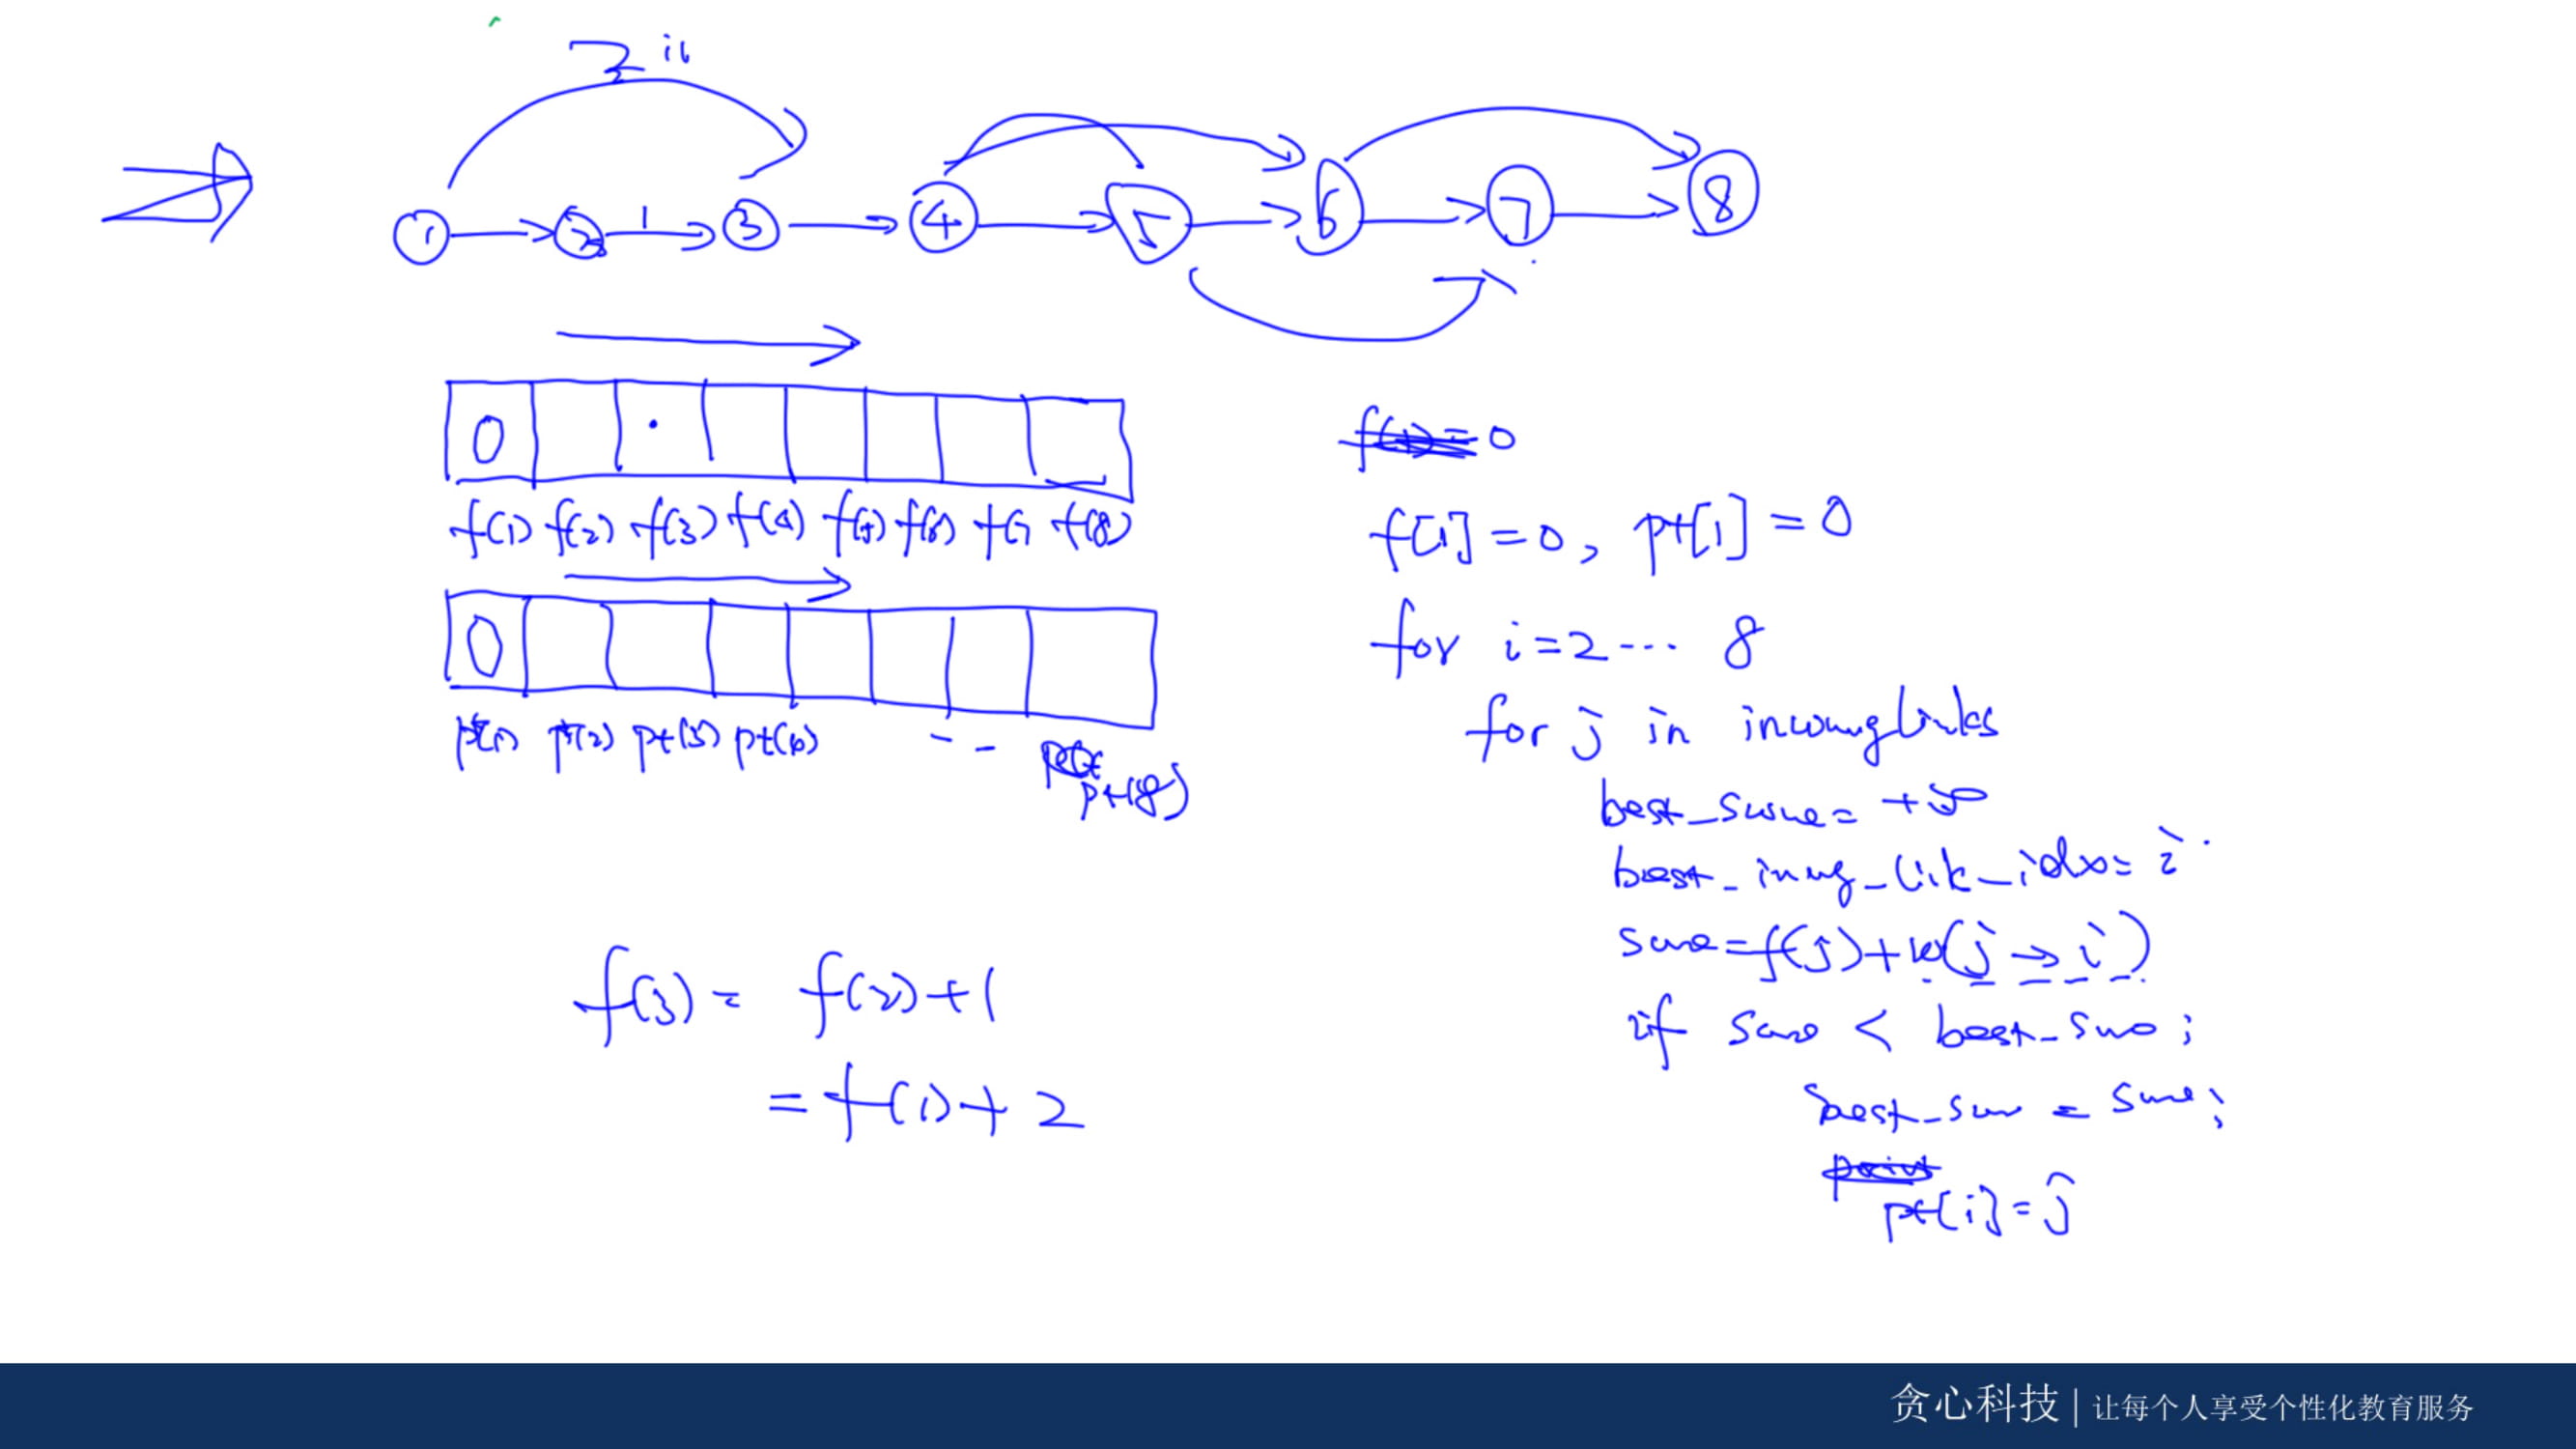 1 2 1 3 4 5 6 7 8
0
f(1) f(2) f(3) f(4) f(5) f(6) f(7 f(8)
0
pt(1) pt(2) pt(3) pt(4) - - pt(8)
f(3) = f(2)+1
= f(1)+2
f(1)=0
f[1]=0, pt[1]=0
for i=2 ... 8
for j in incoming links
best_score= +∞
best_incomg_link_idx= i
score=f(j)+w(j→i)
if score < best_score:
best_score = score;
pt[i]=j
贪心科技 | 让每个人享受个性化教育服务